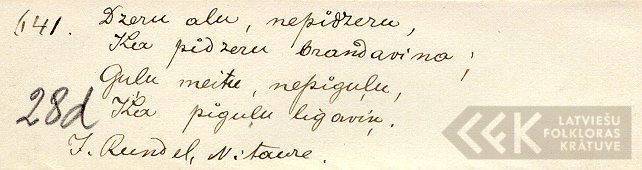 641. Dzeru alu, nepidzeru,
Ka pidzeru brandavina;
Gulu meitu, nepigulu,
28d Ka pigulu ligaviņ.
J. Rundel, Nitaure.
LATVIEŠU
FOLKLORAS
KRĀTUVE